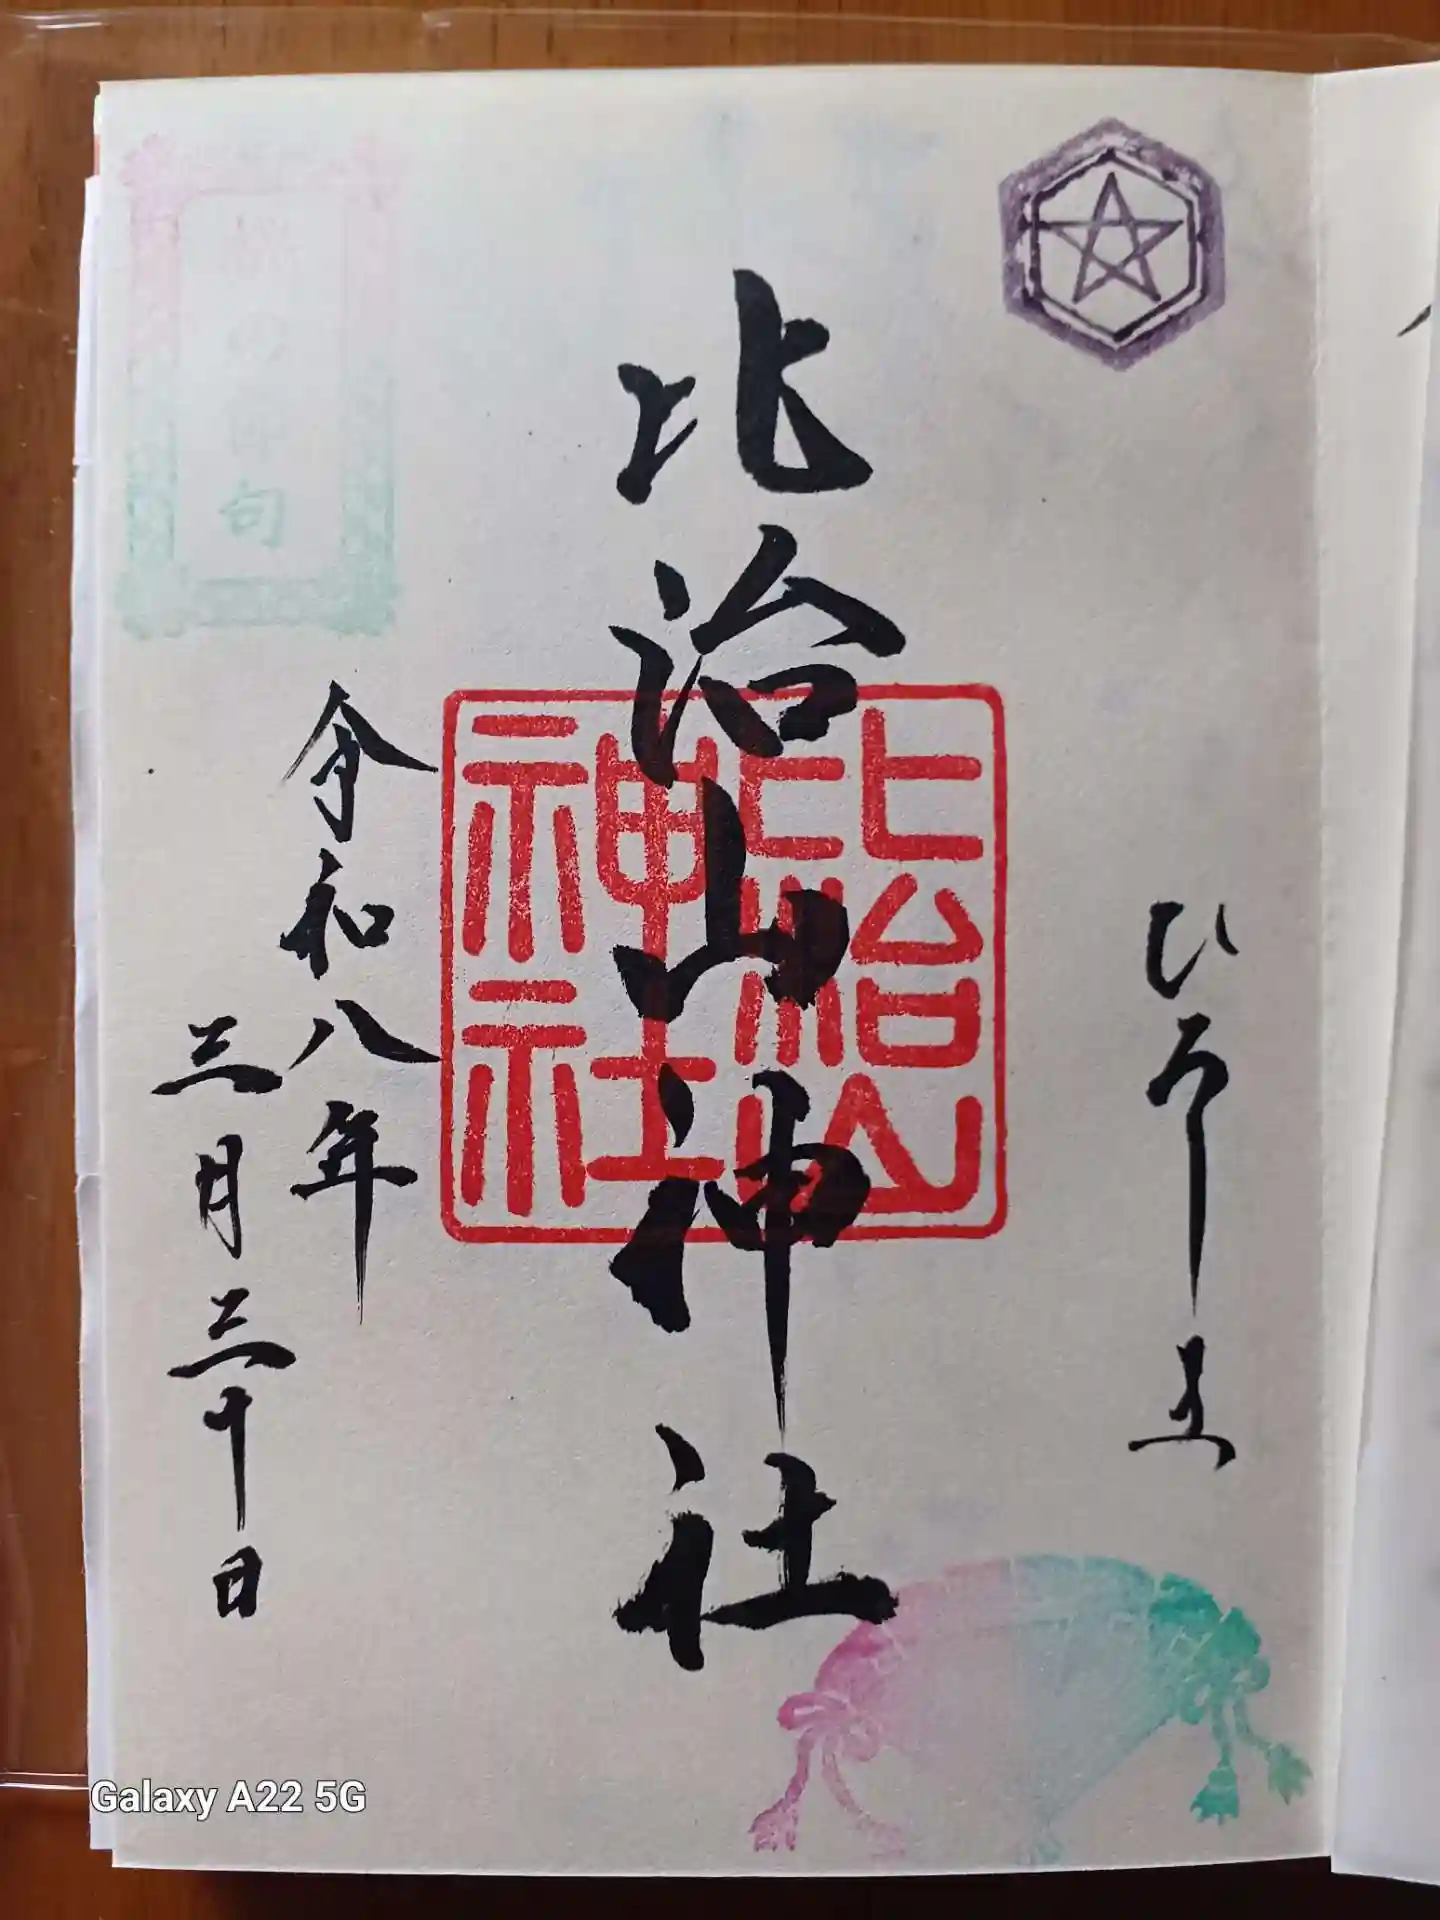 ひろしま
比治山神社
比治山
神社
令和八年
三月三十日
句
Galaxy A22 5G